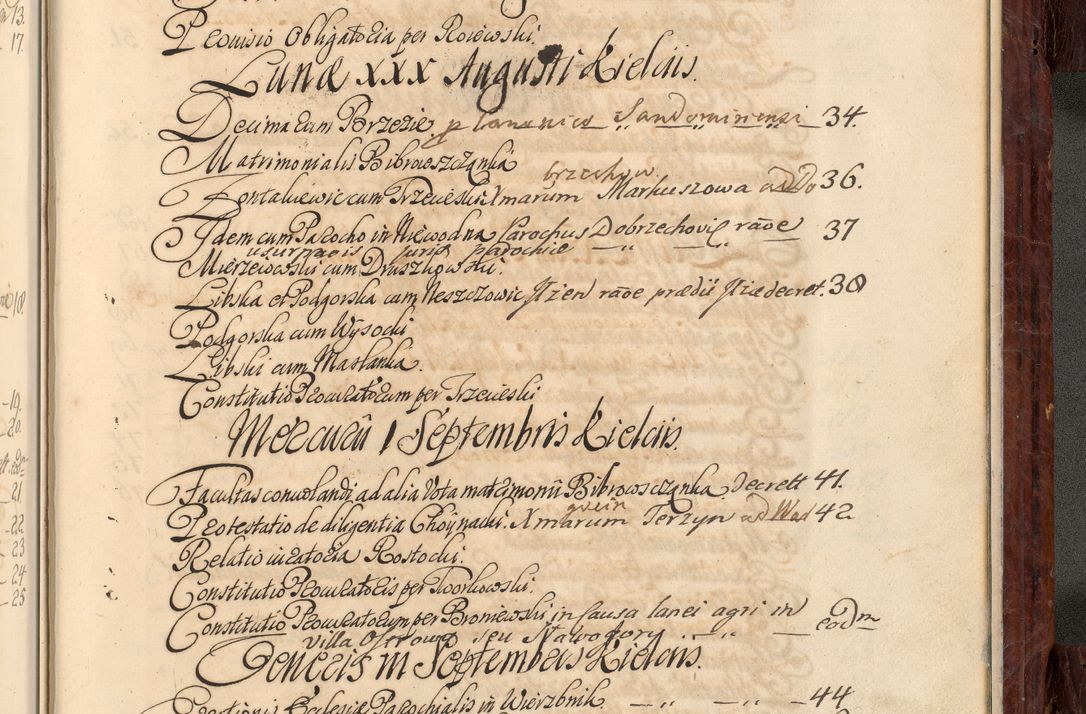 13.
17.
Provisio Obligatoria per Roiewski.
Lunæ XXX Augusti Kielciis.
Decima cum Brzezie, p Canonico Sandomiriensi 34.
Matrimonialis Bibrowszczanka
brzechow.
Fontakiewic cum Trzecieski Xmarum Markuszowa ad Do 36.
Idem cum Parocho in Niewodna Parochus Dobrzechoviẽ raõe 37
usurpatis juris parochiæ
Mierzewoski cum Druszkowski.
Libska et Podgorska cum Neszczowic Itzen raõe prædii Itiæ decret. 38
Podgorska cum Wysocki
Libski cum Maslanka.
Constitutio Procuratorum per Trzecieski
Mercurii 1 Septembris Kielciis.
Facultas convolandi ad alia Vota matrimonii Bibrowszczanka, Decrett 41.
Protestatio de diligentia Choynacki. Xmarum Terzyn ad Wad 42
Relatio
Rostocki.
Constitutio Procuratoris per Tworkowski.
Constitutio Procuratorum per Broniewski in Causa lanei agri in eodm
Villa Ostrowa seu Nawogory
Veneris III Septembris Kielciis.
Ecclesiæ Parochialis in Wierzbnik 44
18.
19.
20.
21
22
23
24
25